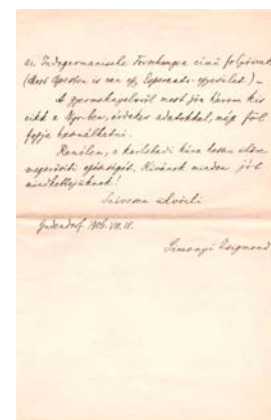 az Indogermanische Forschungen című folyóirat
(Most Pesten is van egy Esperanto-egyesület.) –
A gyermeknyelvről most jön három kis
cikk a Nyr-ben, érdekes adatokkal, még föl
fogja használhatni.
Remélem, a karlsbadi kúra
megerősíti egészségét. Kívánok minden jót
mindkettőjüknek!
Szívesen üdvözli
1906. VIII. 18.
Simonyi Zsigmond